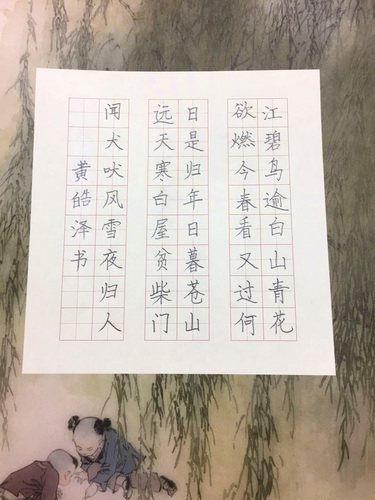 江碧鸟逾白山青花
欲燃今春看又过何
日是归年日暮苍山
远天寒白屋贫柴门
闻犬吠风雪夜归人
黄皓泽书